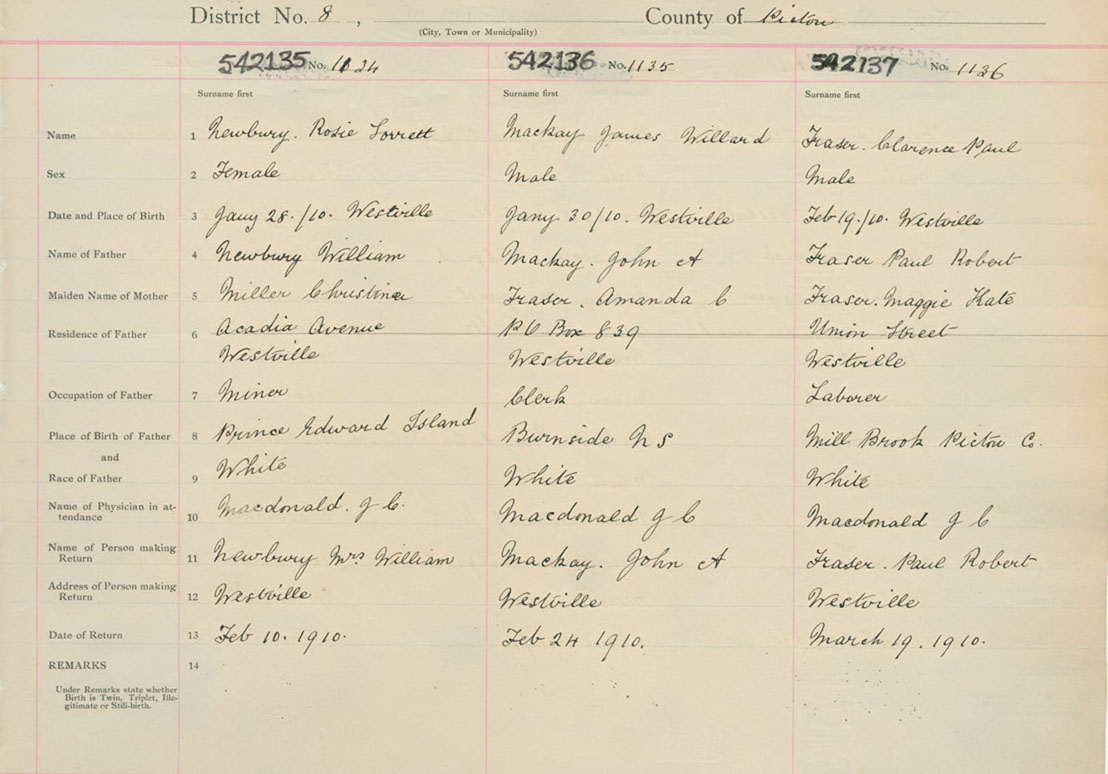 District No. 8, County of Pictou
(City, Town or Municipality)
542135 No. 1134 542136 No. 1135 542137 No. 1136
Surname first Surname first Surname first
Name 1 Newbury. Rosie Mackay James Willard Fraser. Clarence Paul
Sex 2 Female Male Male
Date and Place of Birth 3 Jany 28./10. Westville Jany 30/10. Westville Feb 19./10. Westville
Name of Father 4 Newbury William Mackay. John A Fraser Paul Robert
Maiden Name of Mother 5 Miller Christina Fraser. Amanda C Fraser. Maggie Kate
Residence of Father 6 Acadia Avenue P O Box 839 Union Street
Westville Westville Westville
Occupation of Father 7 Miner Clerk Laborer
Place of Birth of Father 8 Prince Edward Island Burnside N S Mill Brook Pictou C.
and
Race of Father 9 White White White
Name of Physician in at-
tendance 10 Macdonald. J C. Macdonald J C Macdonald J C
Name of Person making
Return 11 Newbury Mrs William Mackay. John A Fraser. Paul Robert
Address of Person making
Return 12 Westville Westville Westville
Date of Return 13 Feb 10. 1910. Feb 24 1910. March 19. 1910.
REMARKS 14
Under Remarks state whether
Birth is Twin, Triplet, Ille-
gitimate or Still-birth.